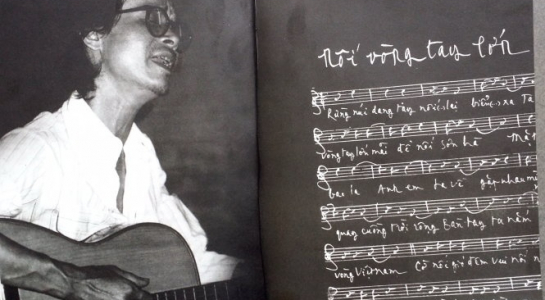 Nối vòng tay lớn
Rừng núi dang tay nối lại biển xa Ta
vòng tay lớn mãi để nối sơn hà
bao la Anh em ta về gặp nhau
quay cuồng trời rộng Bàn tay ta nắm
vòng Việt nam Cờ nối gió đêm vui nối